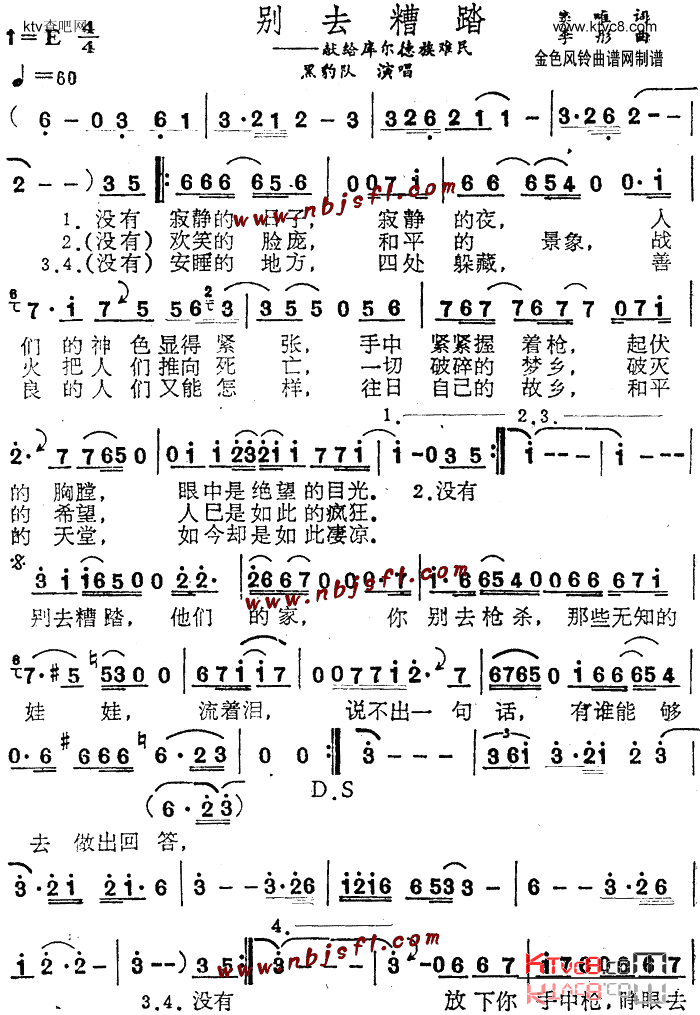 ktv查吧网
别去糟踏
www.ktvc8.com
1=E 4/4
——献给库尔德族难民
李彤 曲
♩=60
黑豹队 演唱
金色风铃曲谱网制谱
(6-03 61|3·212-3|326211-|3·262--|
2--)35‖:666 656|0071|66 65400·1|
www.nbjsfl.com
1.没有 寂静的 日子, 寂静 的夜, 人
2.(没有)欢笑的 脸庞, 和平 的 景象, 战
3.4.(没有)安睡的 地方, 四处 躲藏, 善
7·1 75 563|355056|767 7677 071|
们的神色显得紧 张, 手中 紧紧握 着枪, 起伏
火把人们推向死 亡, 一切 破碎的 梦乡, 破灭
良的人们又能怎 样, 往日 自己的 故乡, 和平
1. 2.3.
2·77650|011232117771|1-035:‖1---|1---|
的 胸膛, 眼中是绝望的目光. 2.没有
的 希望, 人已是如此的疯狂.
的 天堂, 如今却是如此凄凉.
www.nbjsfl.com
3116500 22·|2667000·7|1·6654006 6671|
别去糟踏, 他们 的家, 你 别去枪杀, 那些无知的
7·#5 5300|67117|007712·7|67650166654|
娃 娃, 流着泪, 说不出一 句 话, 有谁能 够
0·6 #666 6·23|0 0:‖3---|361 3·21 23|
(6·23) D.S
去 做出回 答,
3·21 21·6|3--3·26|1216 6533-|6--3·26|
www.nbjsfl.com
4.
1 2·2-|3--)35:‖3---|3-0667|1700667|
3.4.没有 放下你 手中枪,睁眼去
KTVC8.COM